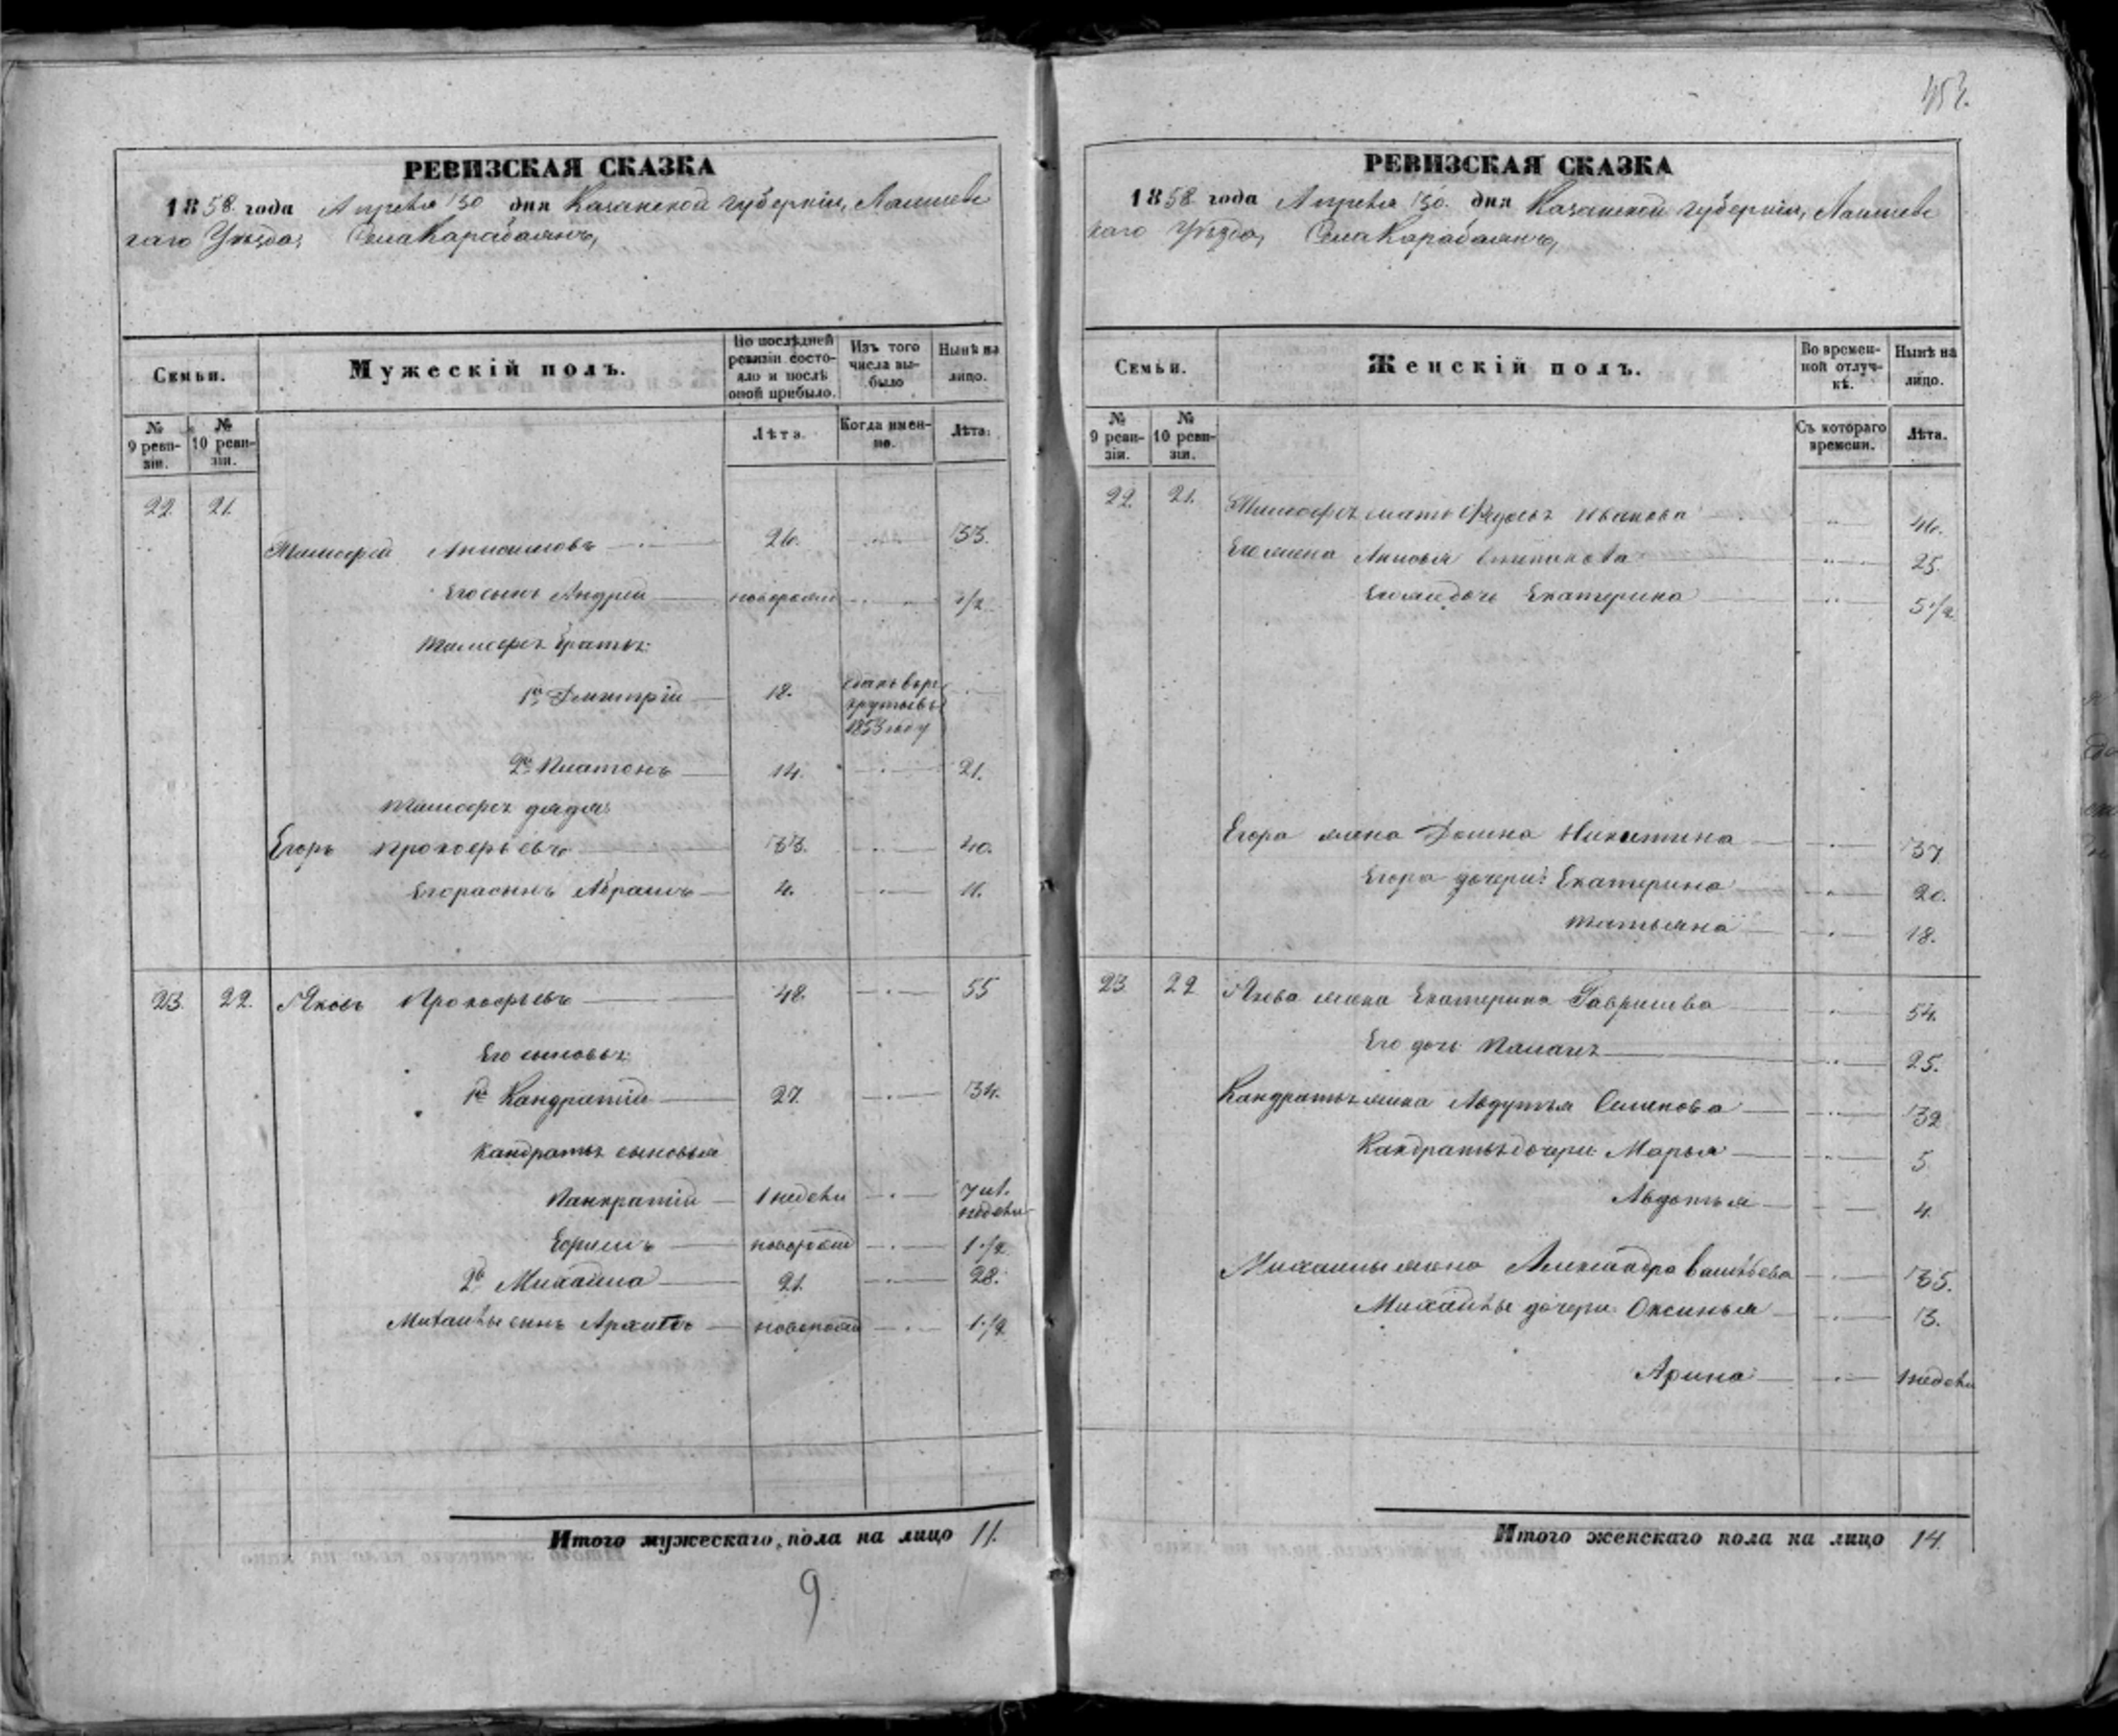 453.
РЕВИЗСКАЯ СКАЗКА
1858 года Апреля 30 дня Казанской губерніи, Лаишевс
каго Уѣзда, Села Карабаянъ,
Семьи.
Мужескій полъ.
По послѣдней ревизіи состояло и послѣ оной прибыло.
Изъ того числа выбыло
Нынѣ на лицо.
№ 9 ревизіи.
№ 10 ревизіи.
Лѣта.
Когда именно.
Лѣта.
22. 21.
Тимофей Анисимовъ 26. 33.
Его сынъ Андрей новорожд 1/2
Тимофея братья:
1й Дмитрій 18. сданъ въ рекруты въ 1853 году
2й Платонъ 14. 21.
Тимофея дядя:
Егоръ Прокофьевъ 33. 40.
Егора сынъ Абрамъ 4. 11.
23. 22. Яковъ Прокофьевъ 48. 55
Его сыновья:
1й Кандратій 27. 34.
Кандратья сыновья
Панкратій 1 недели 7 ле. недели
Ефимъ новорожд 1 1/2
2й Михайла 21. 28.
Михайлы сынъ Архипъ новорожд 1 1/2
Итого мужескаго пола на лицо 11.
9
РЕВИЗСКАЯ СКАЗКА
1858 года Апреля 30. дня Казанской губерніи, Лаишевс
каго Уѣзда, Села Карабаянъ,
Семьи.
Женскій полъ.
Во временной отлучкѣ.
Нынѣ на лицо.
№ 9 ревизіи.
№ 10 ревизіи.
Съ котораго времени.
Лѣта.
22. 21. Тимофея мать Федосья Иванова 46.
Его жена Анисья Степанова 25.
Его дочь Екатерина 5 1/2
Егора жена Домна Никитина 37
Егора дочери: Екатерина 20.
Татьяна 18.
23 22 Якова жена Екатерина Гаврилова 54.
Его дочь Палагея 25.
Кандратья жена Авдотья Семенова 32
Кандратья дочери Марья 5
Авдотья 4.
Михайлы жена Александра Васильева 35.
Михайлы дочери Оксинья 3.
Арина 1 недели
Итого женскаго пола на лицо 14.